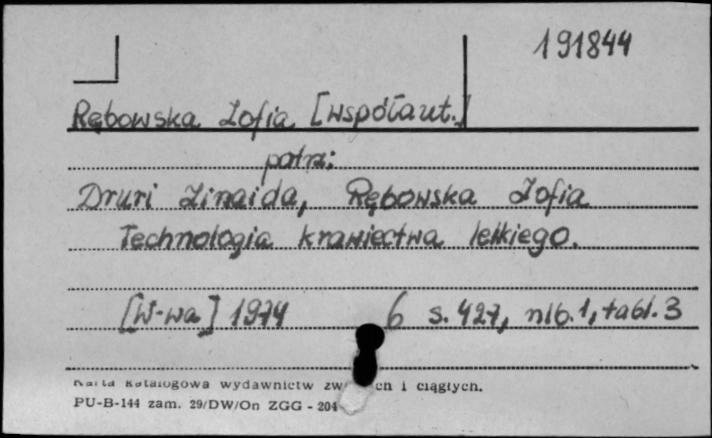 191844
Rębowska Zofia [współaut.]
patrz:
Druri Zinaida, Rębowska Zofia
Technologia krawiectwa lekkiego.
[W-wa] 1974 6 s. 427, nlb. 1, tabl. 3
Karta katalogowa wydawnictw i ciągłych.
PU-B-144 zam. 29/DW/On ZGG - 204